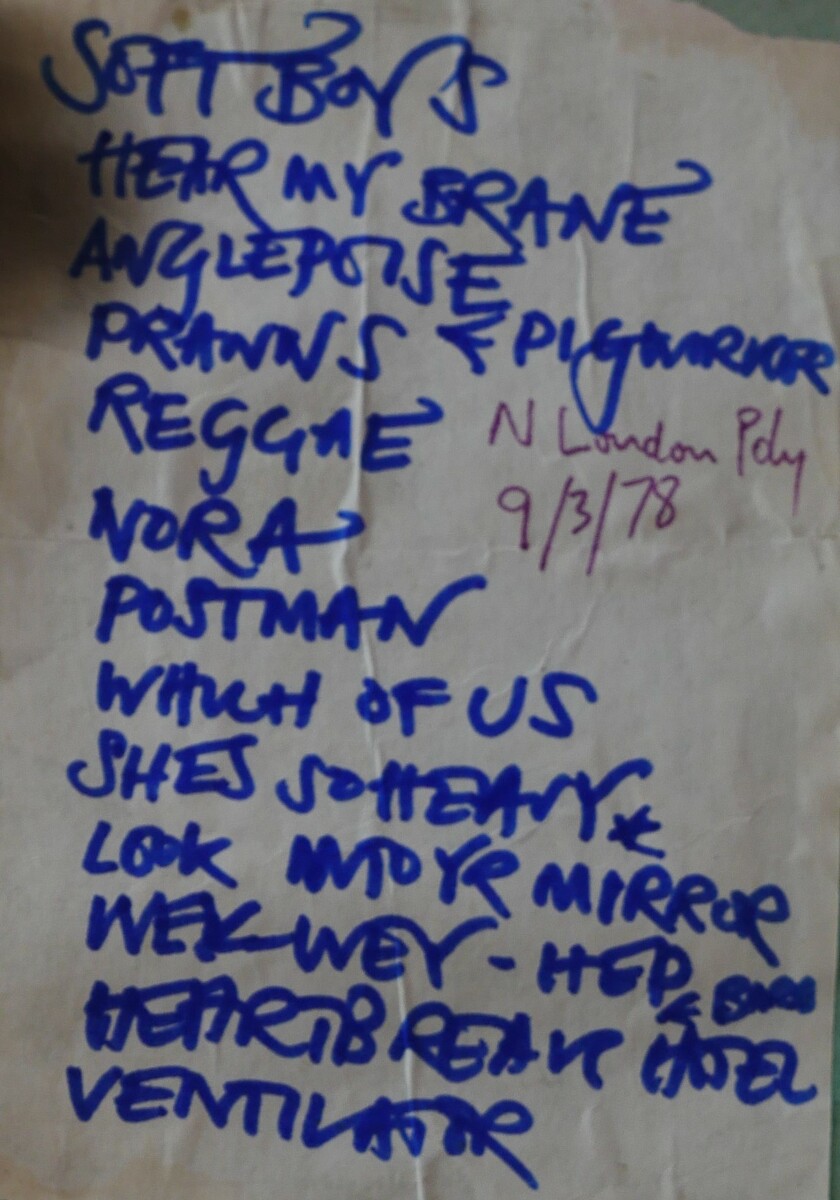 SOFT BOYS
HEAR MY BRANE
ANGLEPOISE
PRAWNS & PIGWORKER
REGGAE
N London Poly
9/3/78
NORA
POSTMAN
WHICH OF US
SHES SO HEAVY *
LOOK INTO YR MIRROR
WEY-WEY-HEP
HEARTBREAK HOTEL
VENTILATOR